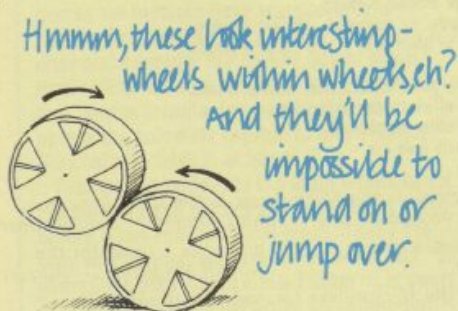 Hmmm, these look interesting -
wheels within wheels, eh?
And they'll be
impossible to
stand on or
jump over.